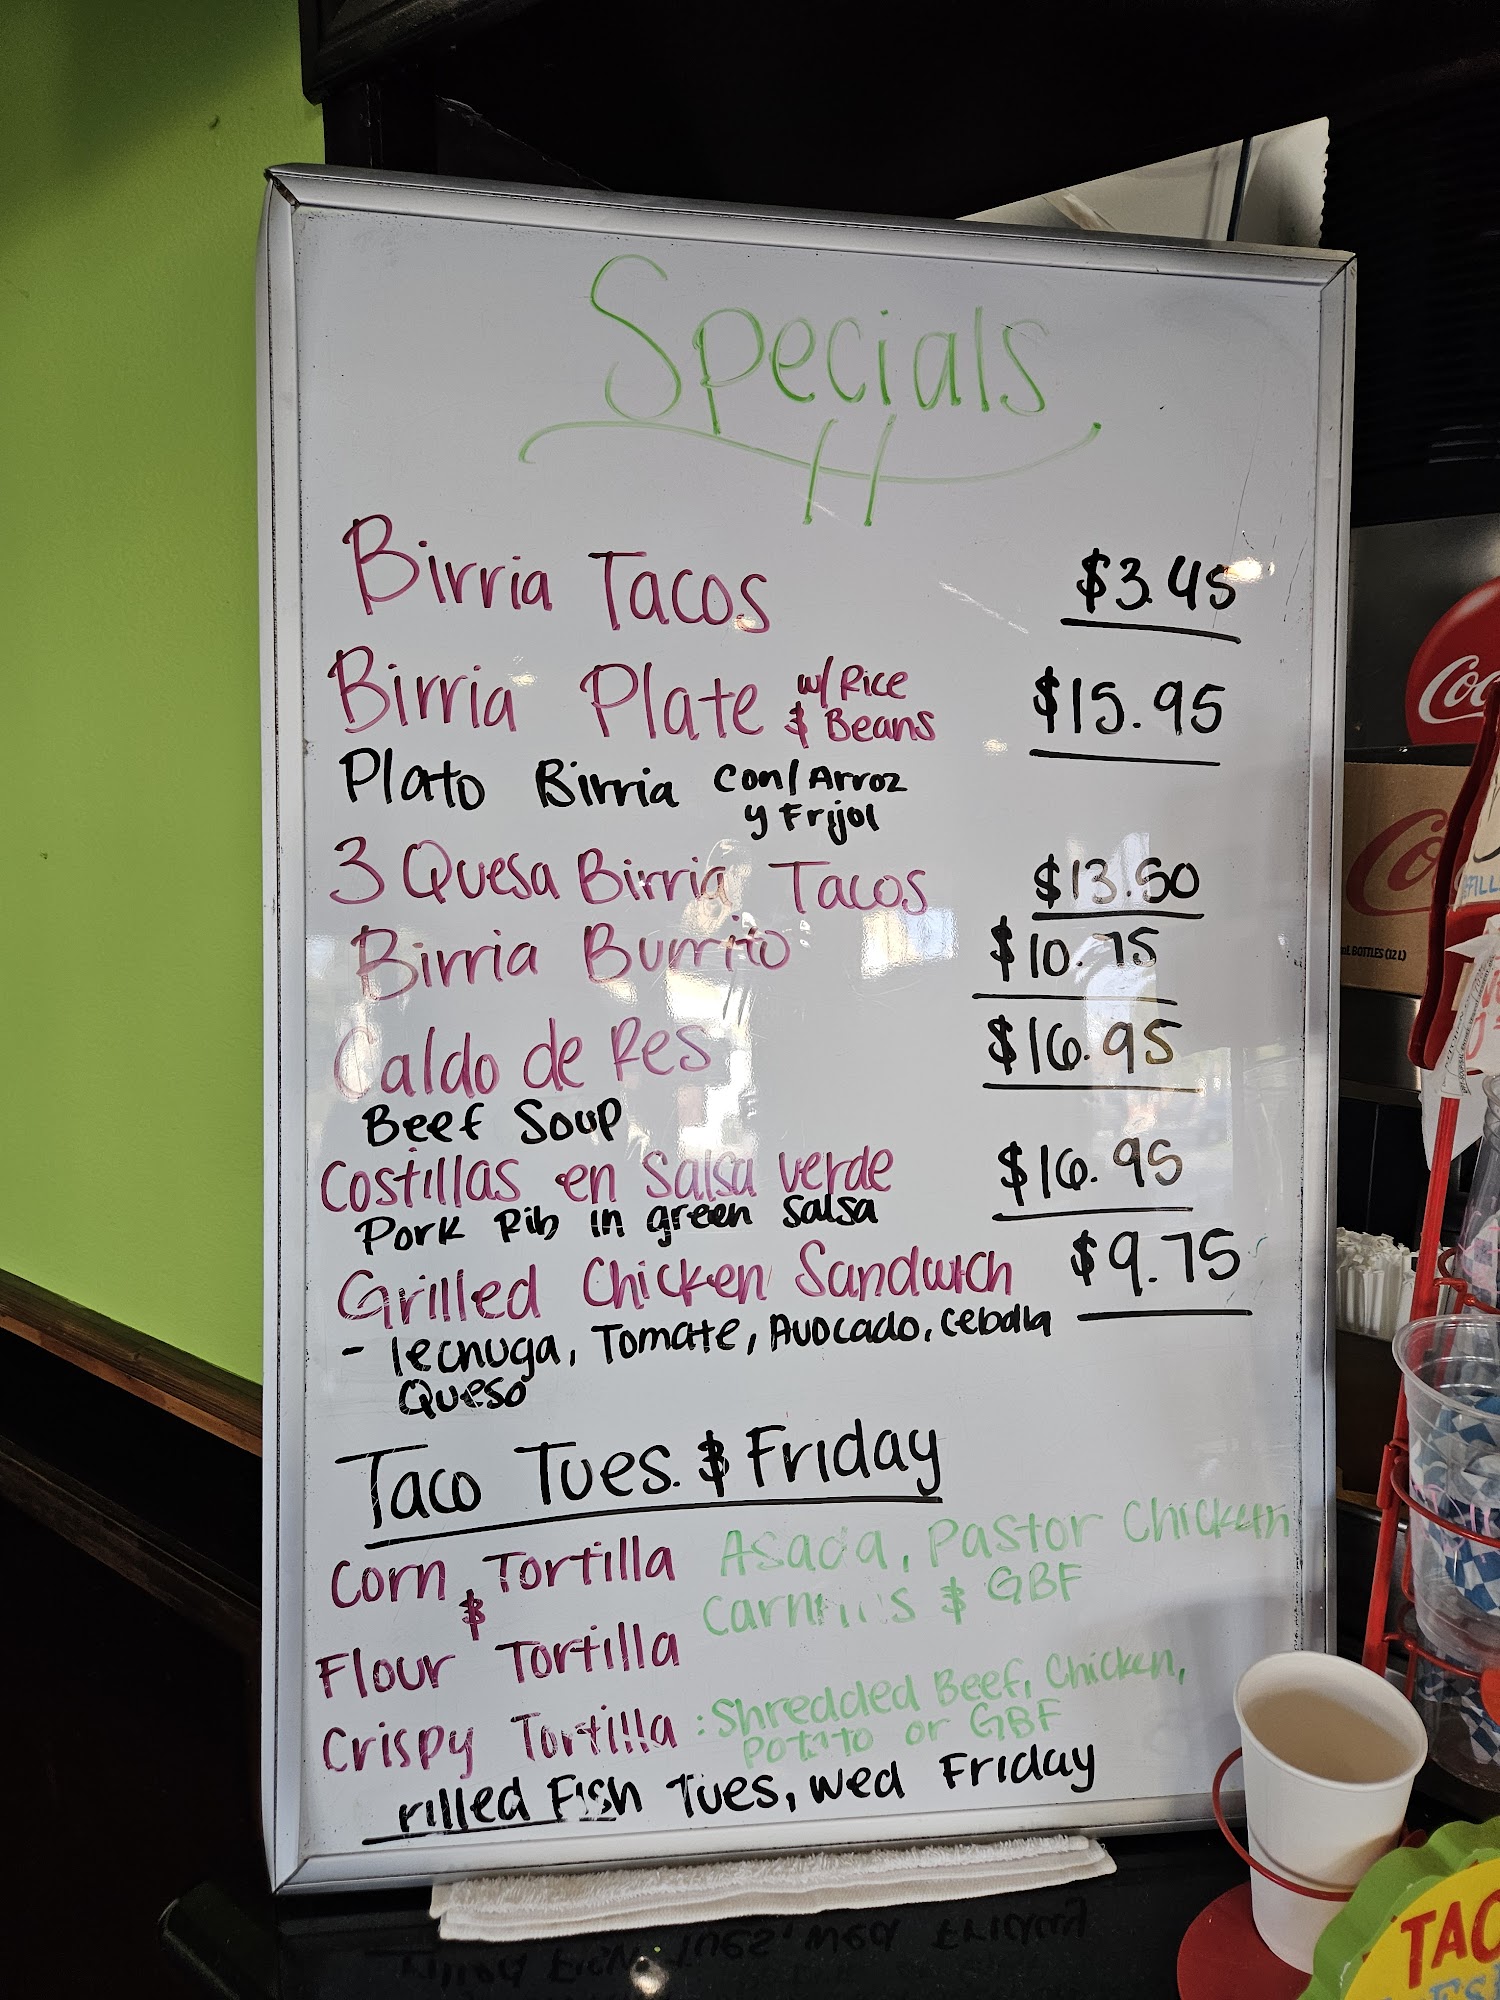 Specials
Birria Tacos $3.45
Birria Plate w/ Rice & Beans $15.95
Plato Birria Con/Arroz y Frijol
3 Quesa Birria Tacos $13.50
Birria Burrito $10.75
Caldo de Res $16.95
Beef Soup
Costillas en Salsa verde $16.95
Pork Rib in green Salsa
Grilled Chicken Sandwich $9.75
- lechuga, Tomate, Avocado, Cebolla
Queso
Taco Tues. & Friday
Corn Tortilla Asada, Pastor Chicken
& Carnitas & GBF
Flour Tortilla
Crispy Tortilla : Shredded Beef, Chicken,
Potato or GBF
rilled Fish Tues, Wed Friday
Coc
Co
BOTTLES (12 L)
TAC